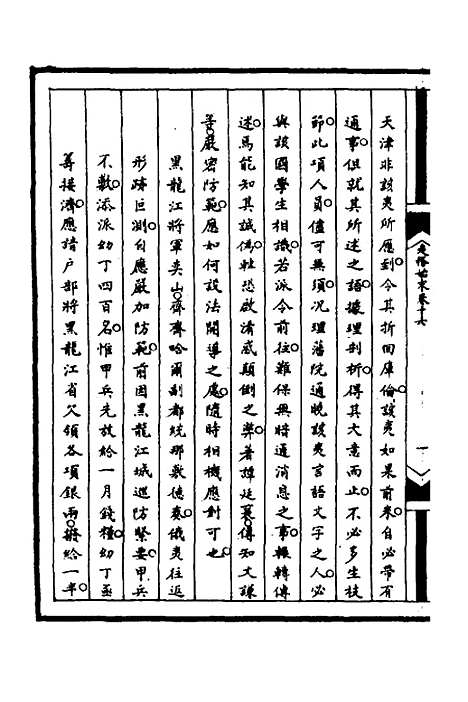 天津非該夷所應到。令其折回庫倫。該夷如果前來。自必帶有
通事。但就其所述之語。據理剖析。得其大意而止。不必多生枝
節。此項人員。儘可無須。況理藩院通曉該夷言語文字之人。必
與該國學生相識。若派令前往。難保無暗通消息之事。輾轉傳
述。焉能知其誠偽。壯恐啟淆惑顛倒之弊。著譚廷襄。傳知文謙
等。嚴密防範。應如何設法開導之處。隨時相機應付可也。
黑龍江將軍奕山。齊齊哈爾副都統那敷德奏。俄夷往返
形跡叵測。自應嚴加防範。前因黑龍江城巡防緊要。甲兵
不敷。添派幼丁四百名。惟甲兵先放給一月錢糧。幼丁亟
籌接濟。應請戶部將黑龍江省欠領各項銀兩。撥給一年。
夷務始末卷十六
一